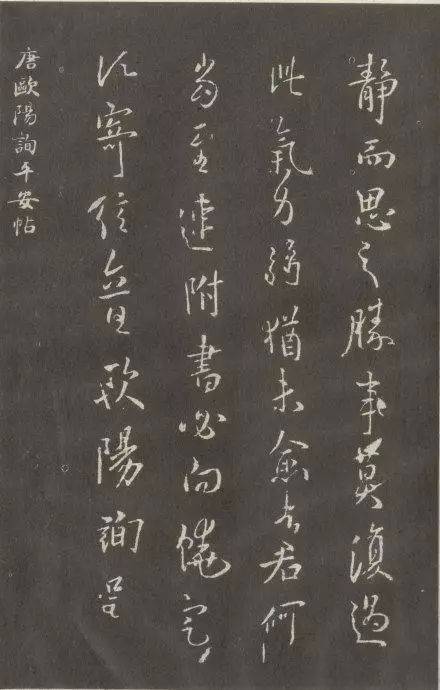 靜而思之勝事莫復過
此氣力弱猶未愈吾君何
當至速附書必向饒定
寄信旨歐陽詢呈
唐歐陽詢平安帖